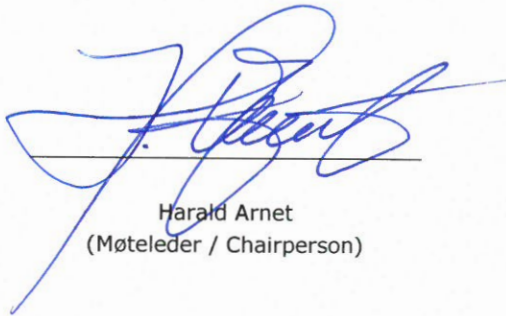 Harald Arnet
(Møteleder / Chairperson)